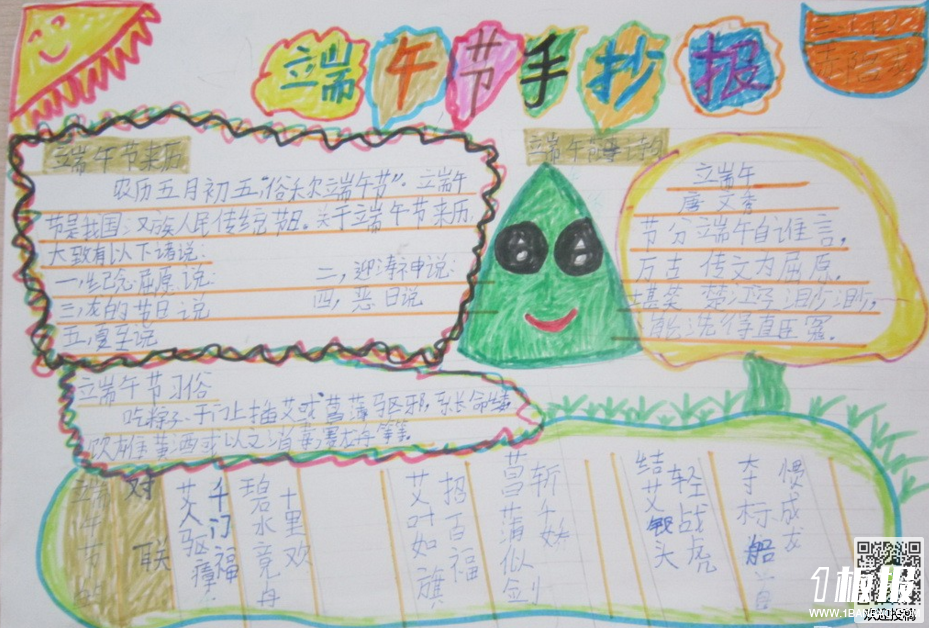 端午节手抄报
端午节来历
农历五月初五"俗称端午节"。端午
节是我国汉族人民传统节日。关于端午节来历,
大致有以下诸说:
一,纪念屈原说:
二,迎涛神说:
三,龙的节日说
四,恶日说
五,夏至说
端午节习俗
吃粽子,于门上插艾或菖蒲驱邪,系长命缕
饮雄黄酒或以之消毒,赛龙舟等等。
端午
唐 文秀
节分端午自谁言,
万古传文为屈原,
堪笑楚江空渺渺,
能洗得直臣冤。
端午节
对联
艾人驱瘴千门福
碧水竞舟十里欢
艾叶如旗招百福
菖蒲似剑斩千妖
结艾敬头轻战虎
夺标船首惯成龙
1板报
WWW.1BANBAO.COM
欢迎投稿